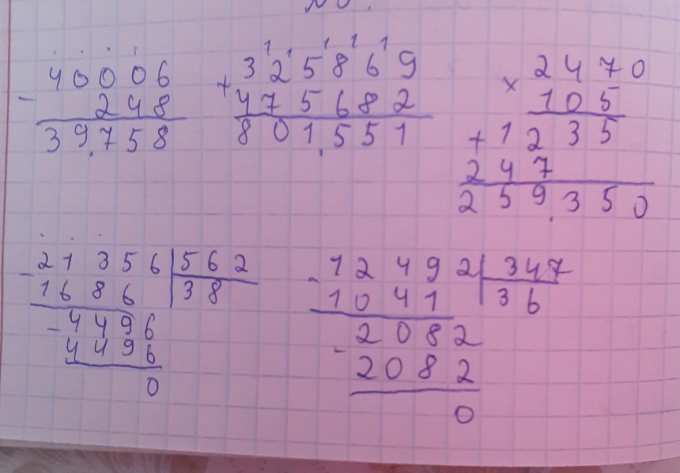 40006
- 248
39.758
1 1 1 1 1
325869
+ 475682
801.551
2470
× 105
+ 1235
247
259.350
- 21356 | 562
1686 | 38
- 4496
4496
0
- 12492 | 347
1041 | 36
- 2082
2082
0